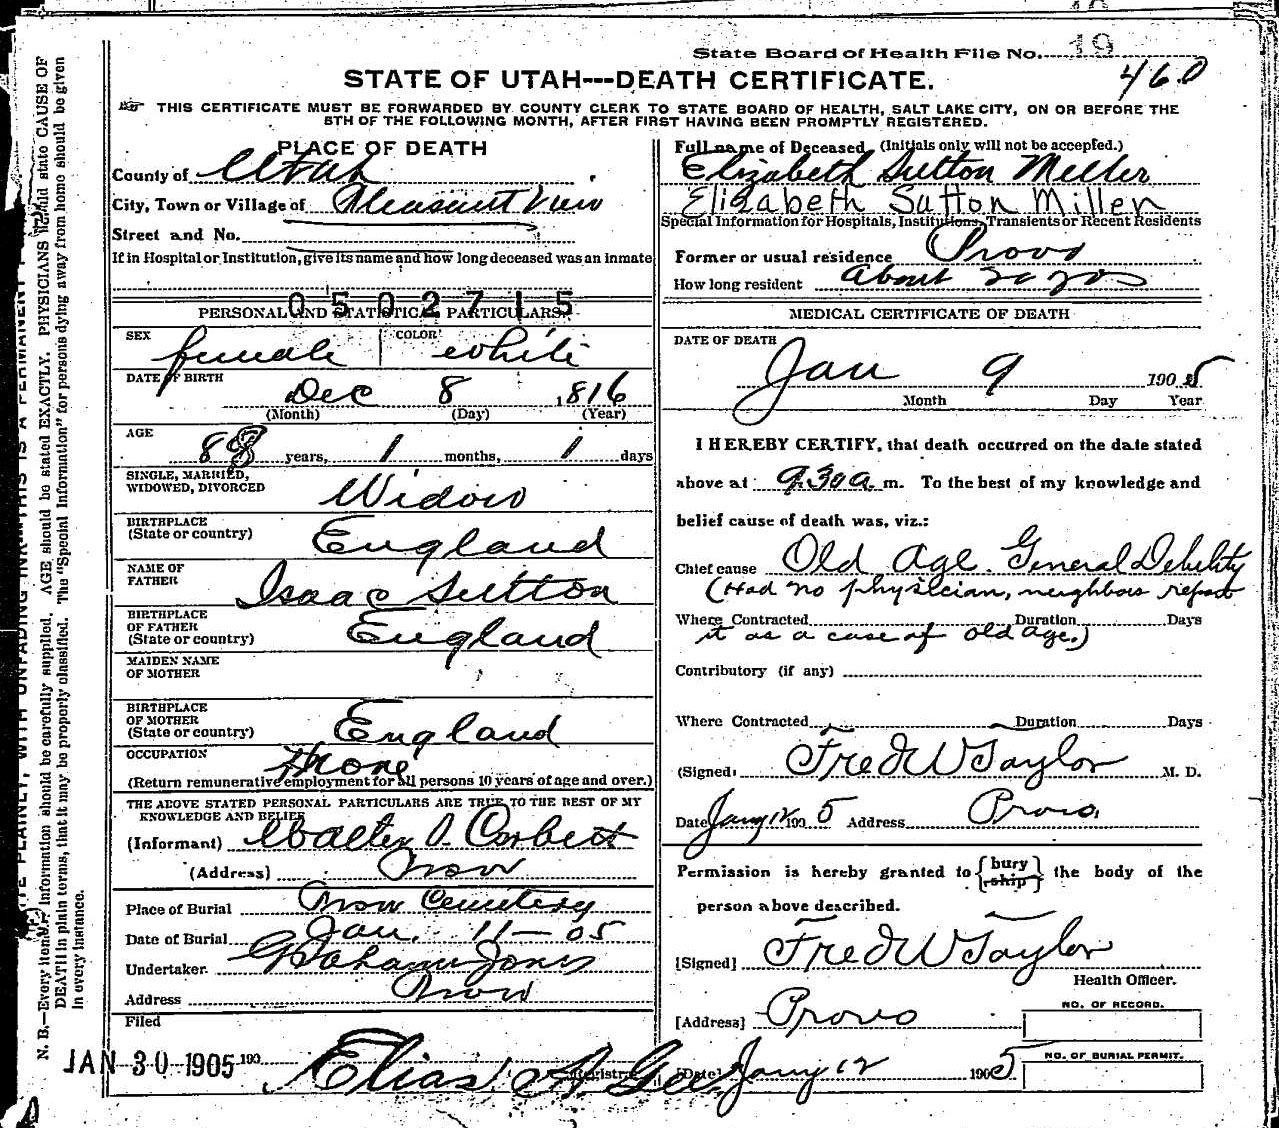 State Board of Health File No. 19
460
STATE OF UTAH---DEATH CERTIFICATE.
THIS CERTIFICATE MUST BE FORWARDED BY COUNTY CLERK TO STATE BOARD OF HEALTH, SALT LAKE CITY, ON OR BEFORE THE
8TH OF THE FOLLOWING MONTH, AFTER FIRST HAVING BEEN PROMPTLY REGISTERED.
PLACE OF DEATH
County of Utah
City, Town or Village of Pleasant View
Street and No.
If in Hospital or Institution, give its name and how long deceased was an inmate
0502715
PERSONAL AND STATISTICAL PARTICULARS
SEX female COLOR white
DATE OF BIRTH Dec 8 1816
(Month) (Day) (Year)
AGE 88 years, 1 months, 1 days
SINGLE, MARRIED,
WIDOWED, DIVORCED Widow
BIRTHPLACE
(State or country) England
NAME OF
FATHER Isaac Sutton
BIRTHPLACE
OF FATHER
(State or country) England
MAIDEN NAME
OF MOTHER
BIRTHPLACE
OF MOTHER
(State or country) England
OCCUPATION None
(Return remunerative employment for all persons 10 years of age and over.)
THE ABOVE STATED PERSONAL PARTICULARS ARE TRUE TO THE BEST OF MY
KNOWLEDGE AND BELIEF
(Informant) Walter Corbett
(Address) Provo
Place of Burial Provo Cemetery
Date of Burial Jan. 11-05
Undertaker. Graham Jones
Address Provo
Filed
JAN 30 1905 190 Elias A. Gee Registrar
Full name of Deceased (Initials only will not be accepted.)
Elizabeth Sutton Miller
Elizabeth Sutton Miller
Special Information for Hospitals, Institutions, Transients or Recent Residents
Former or usual residence Provo
How long resident about 20 yrs
MEDICAL CERTIFICATE OF DEATH
DATE OF DEATH
Jan 9 1905
Month Day Year
I HEREBY CERTIFY, that death occurred on the date stated
above at 9.30 a m. To the best of my knowledge and
belief cause of death was, viz.:
Chief cause Old Age. General Debility
(Had no physician, neighbors report
Where Contracted Duration Days
it as a case of old age.)
Contributory (if any)
Where Contracted Duration Days
(Signed) Fred W Taylor M. D.
Date Jany 12 1905 Address Provo.
Permission is hereby granted to {bury ship} the body of the
person above described.
[Signed] Fred W Taylor
Health Officer.
[Address] Provo
NO. OF RECORD.
[Date] Jany 12 1905
NO. OF BURIAL PERMIT.
N. B.—Every item of information should be carefully supplied. AGE should be stated EXACTLY. PHYSICIANS should state CAUSE OF
DEATH in plain terms, that it may be properly classified. The "Special Information" for persons dying away from home should be given
in every instance.
PLAINLY, WITH UNFADING INK—THIS IS A PERMANENT